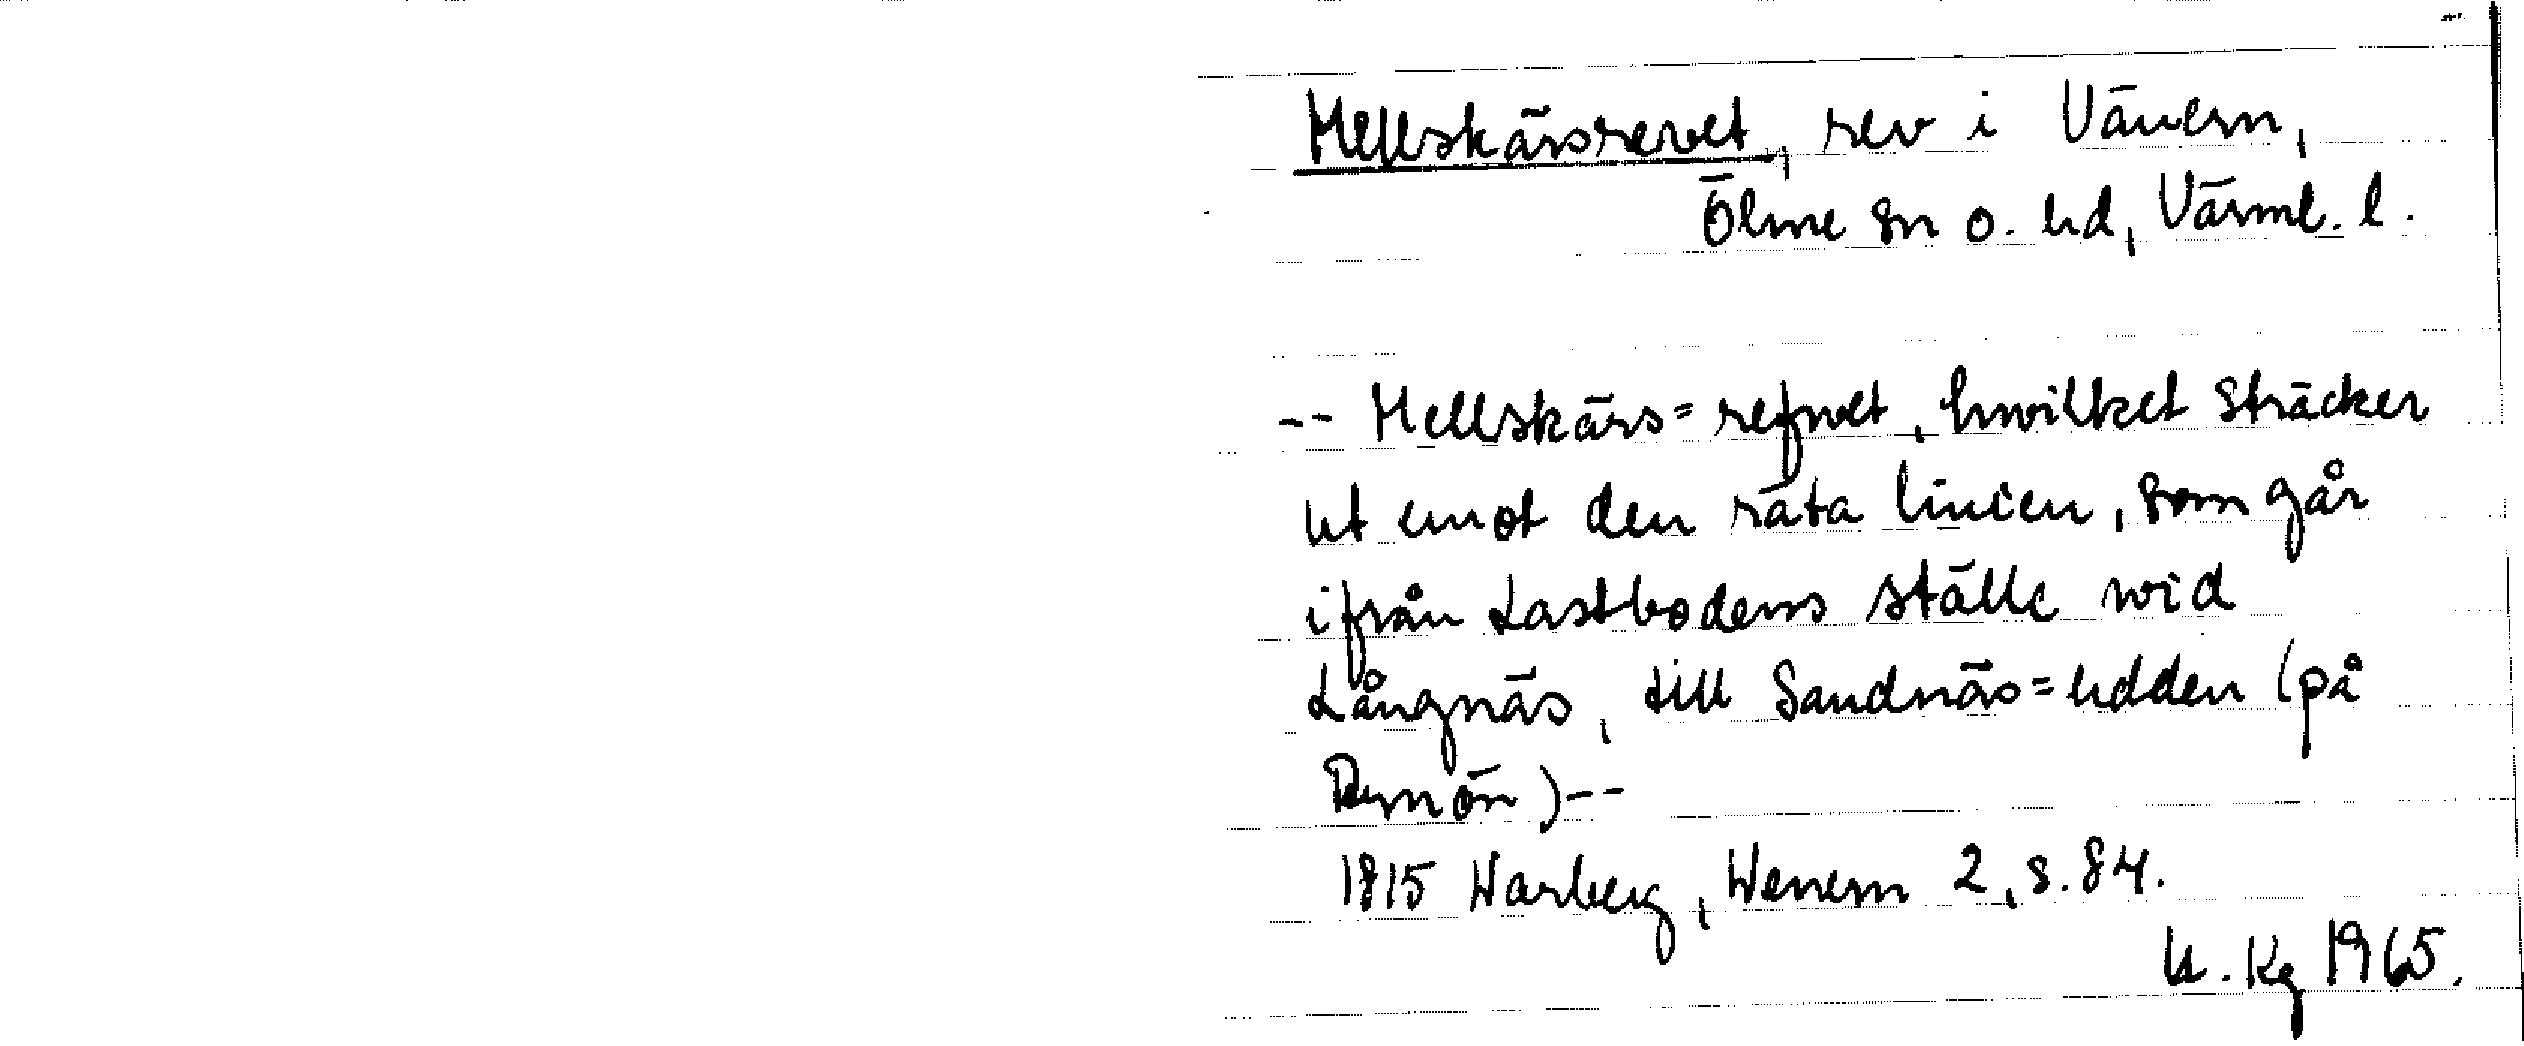 Hellskärsrevet, rev i Vänern,
Ölme sn o. hd, Värml. l.
-- Hellskärs=refwet, hwilket sträcker
ut emot den räta linien, som går
ifrån Lastbodens ställe wid
Långnäs, till Sandnäs=udden (på
)--
1815 Warberg, Wenern 2, s. 84.
U. Kg 1965.